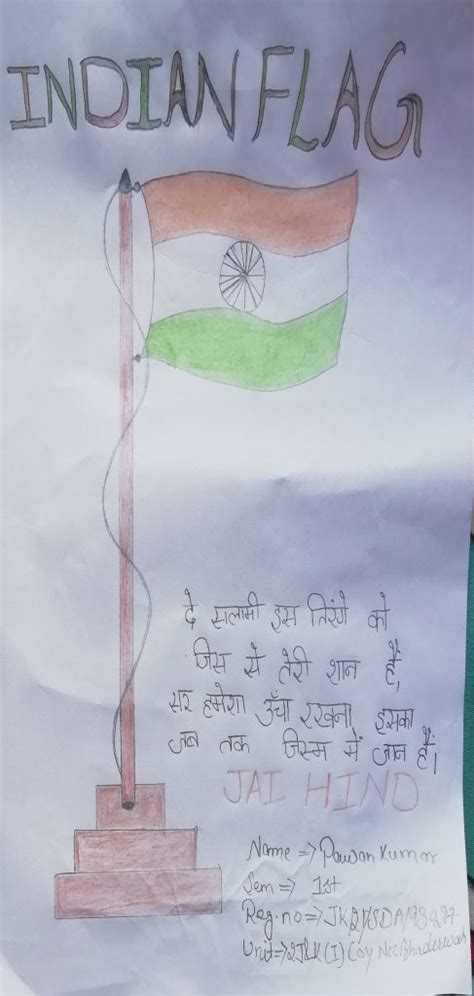 INDIAN FLAG
दे सलामी इस तिरंगे को
जिस से तेरी शान है,
सर हमेशा उँचा रखना इसका
जब तक जिस्म में जान है।
JAI HIND
Name => Pawan Kumar
Sem => 1st
Reg.no =>
Unit => (I) Coy NCC Bhaderwah